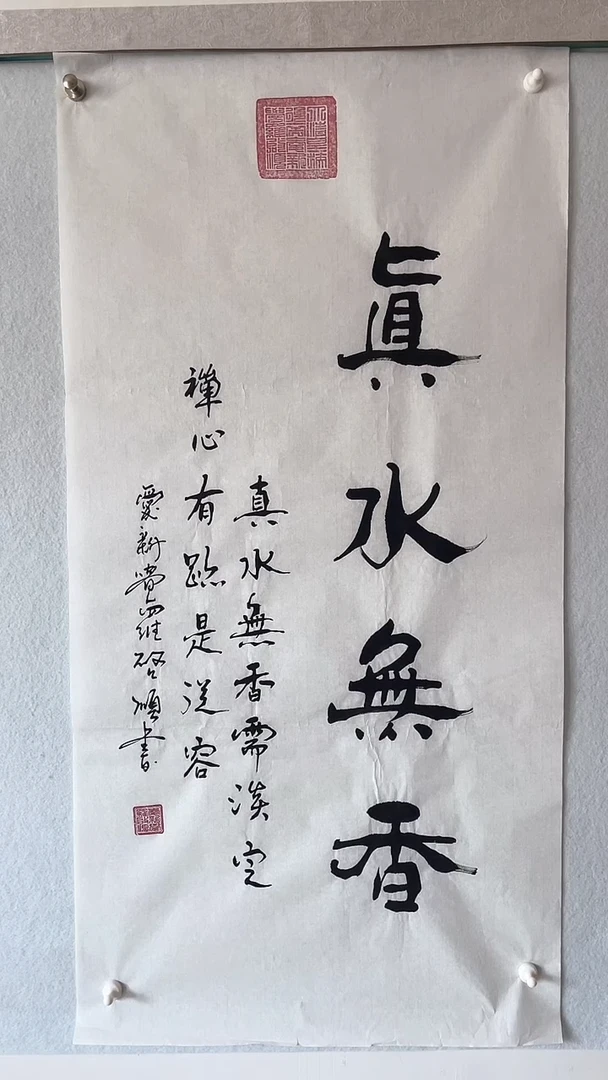 眞水無香
真水無香需淡定
禪心有跡是從容
愛新覺羅啓順書